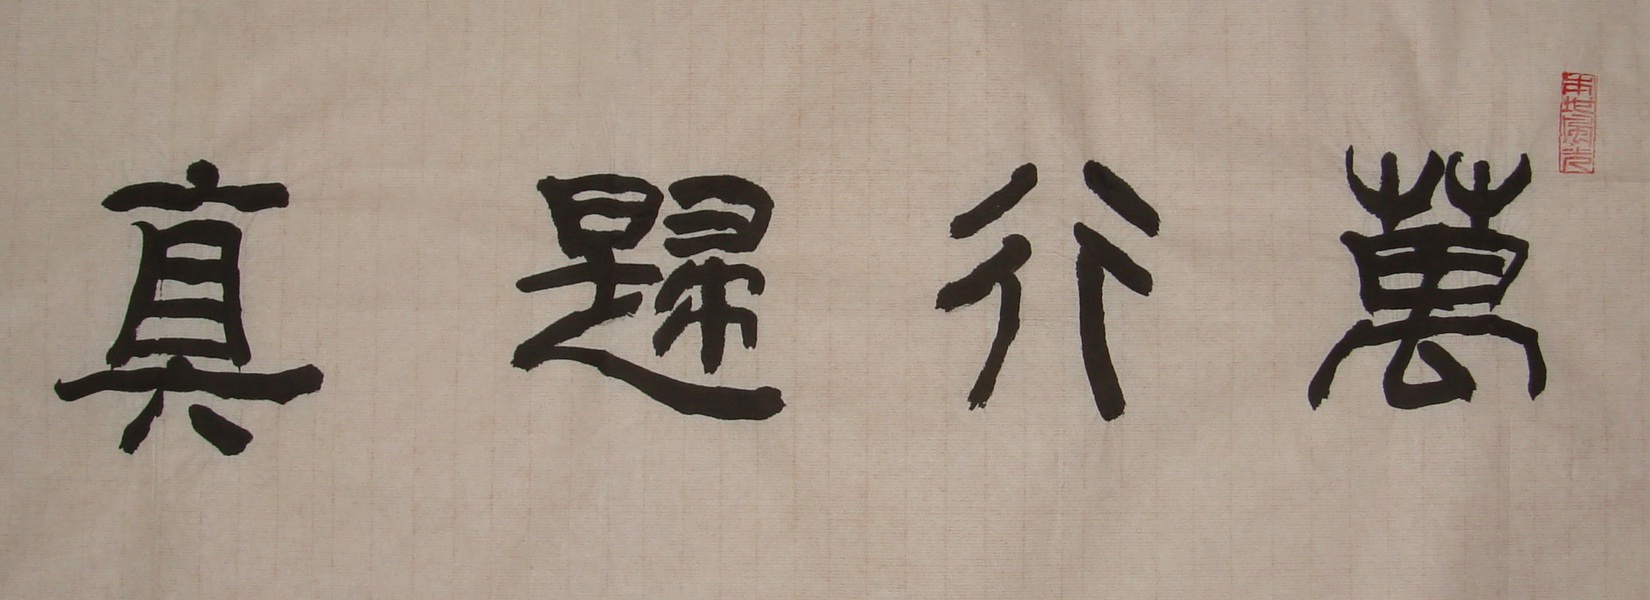 萬行歸真